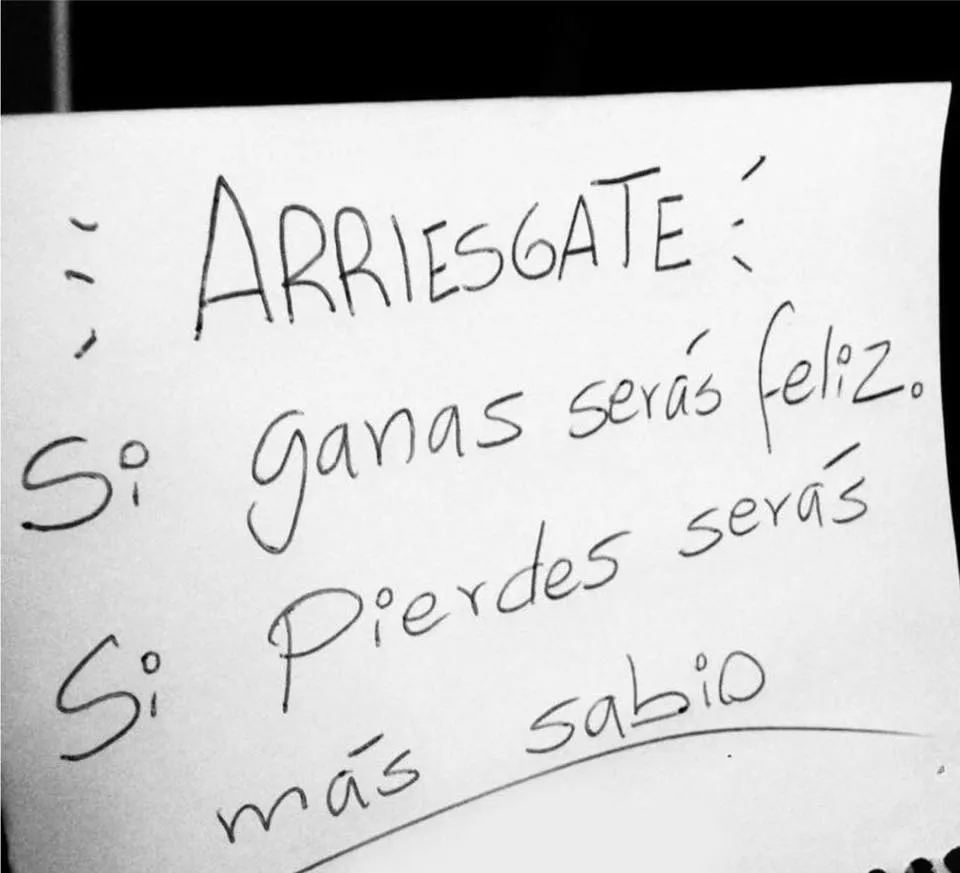 ARRIESGATE
Si ganas serás feliz.
Si Pierdes serás
más sabio